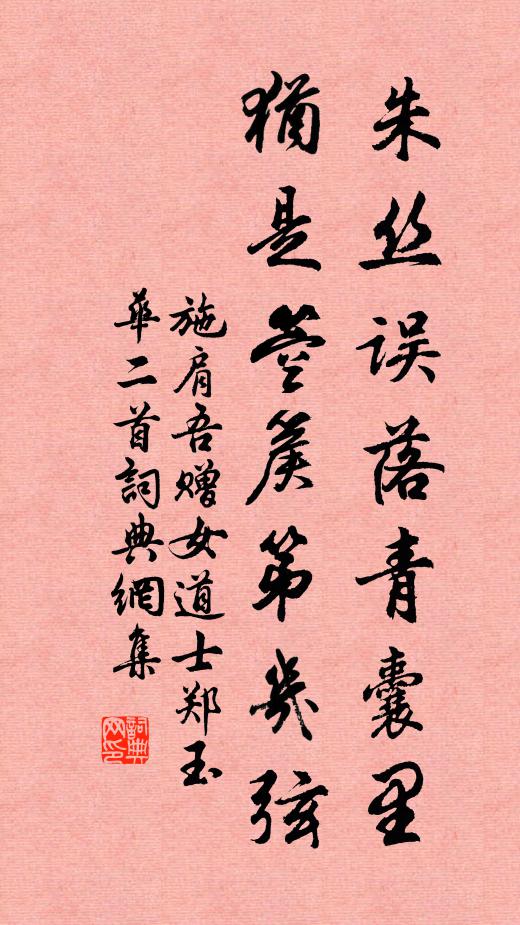 朱丝误落青囊里
犹是箜篌第几弦
施肩吾赠女道士郑玉
华二首詞典網集
詞典
网印